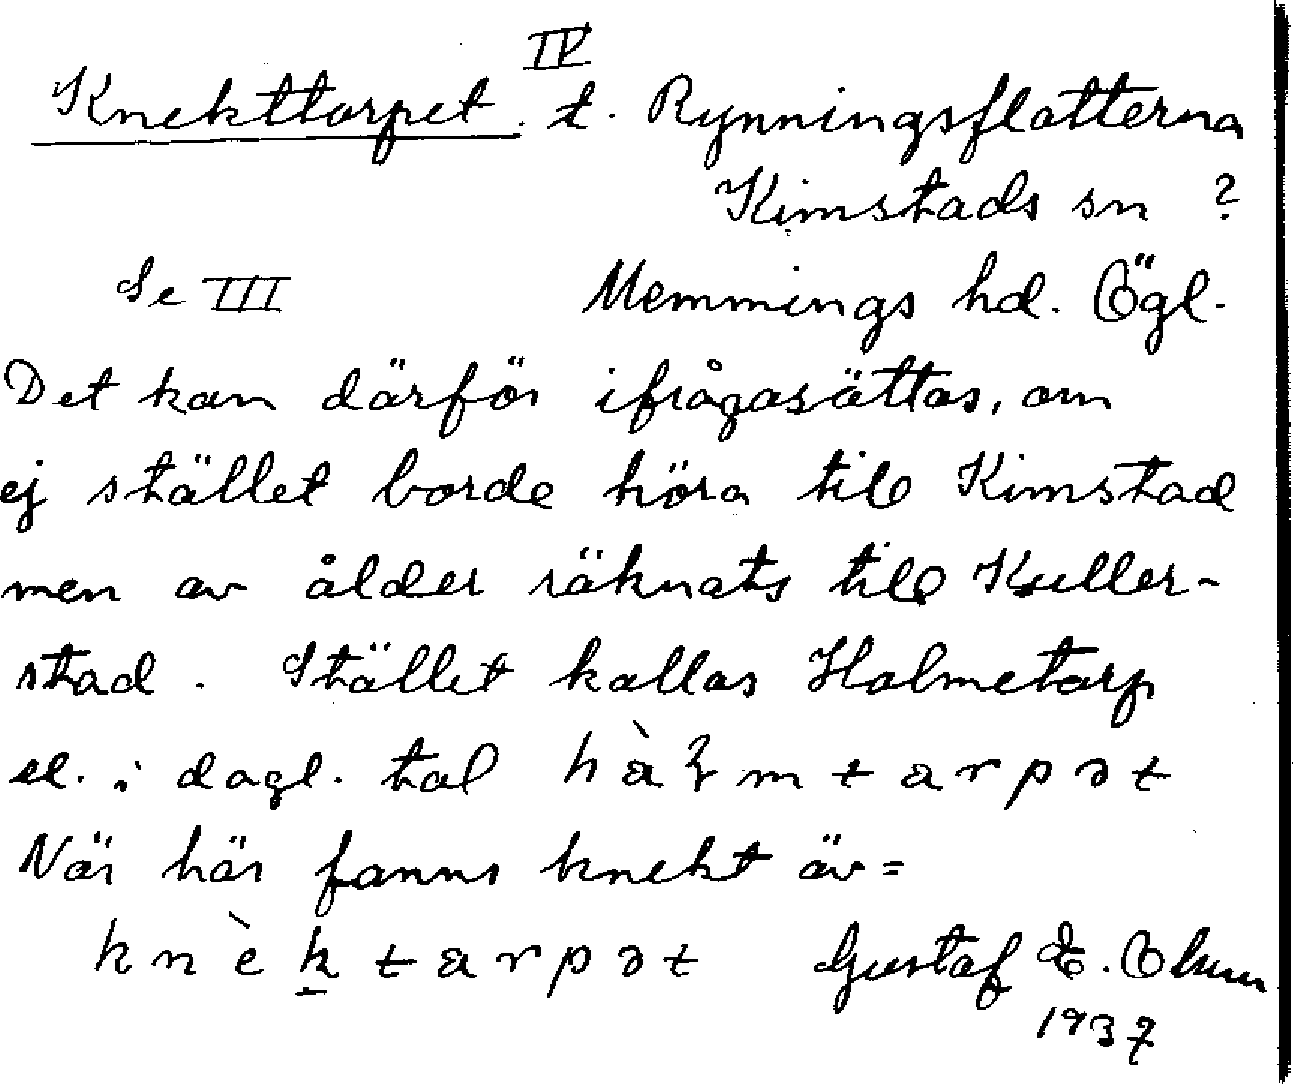 IV
Knekttorpet. t. Rynningsflatterna
Kimstads sn ?
Se III Memmings hd. Ögl.
Det kan därför ifrågasättas, om
ej stället borde höra till Kimstad
men av ålder räknats till Kuller-
stad. Stället kallas Holmetorp
el. i dagl. tal
När här fanns knekt äv=
Gustaf E.
1937